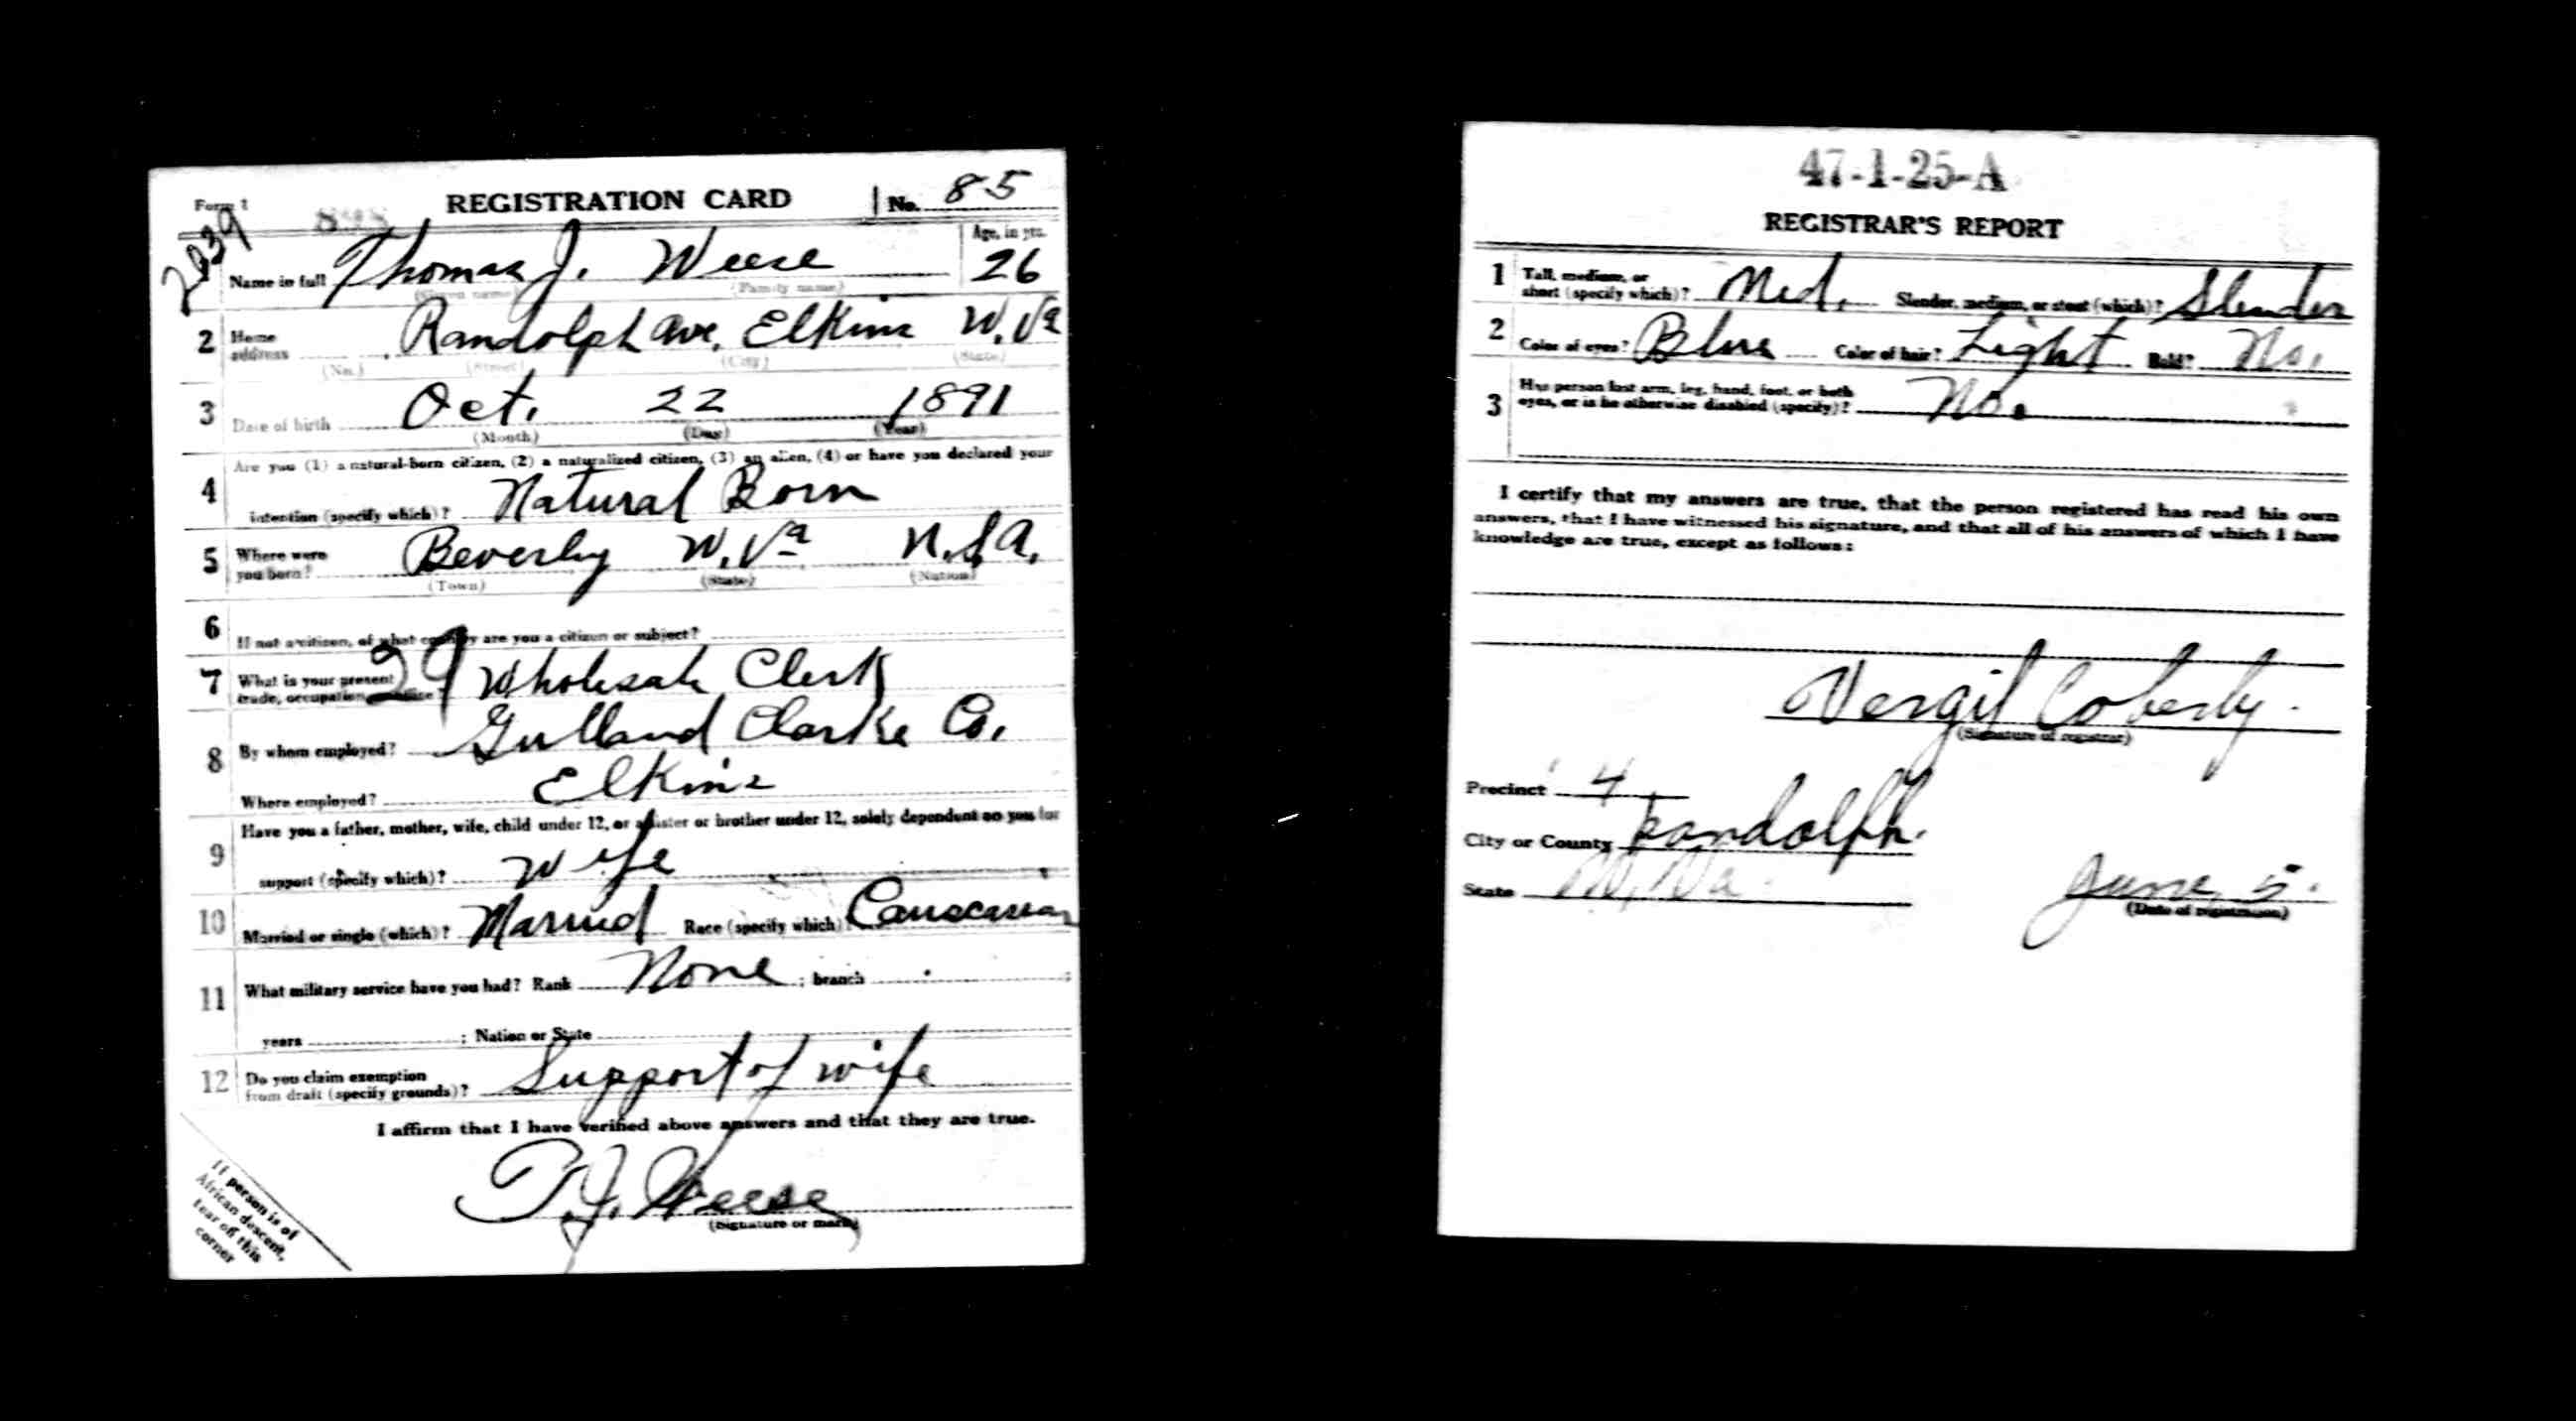 Form 1 REGISTRATION CARD No. 85
2039
Name in full Thomas J. Weese Age, in yrs. 26
(Given name) (Family name)
2 Home address Randolph Ave. Elkins W. Va
(No.) (Street) (City) (State)
3 Date of birth Oct. 22 1891
(Month) (Day) (Year)
4 Are you (1) a natural-born citizen, (2) a naturalized citizen, (3) an alien, (4) or have you declared your
intention (specify which)? Natural Born
5 Where were you born? Beverly W. Va U.S.A.
(Town) (State) (Nation)
6 If not a citizen, of what country are you a citizen or subject?
7 What is your present trade, occupation, or office? 29 Wholesale Clerk
8 By whom employed? Gulland Clarke Co.
Where employed? Elkins
9 Have you a father, mother, wife, child under 12, or a sister or brother under 12, solely dependent on you for
support (specify which)? Wife
10 Married or single (which)? Married Race (specify which)? Causcasian
11 What military service have you had? Rank None ; branch ;
years ; Nation or State
12 Do you claim exemption from draft (specify grounds)? Support of wife
I affirm that I have verified above answers and that they are true.
T.J. Weese
(Signature or mark)
If person is of
African descent,
tear off this
corner
47-1-25-A
REGISTRAR'S REPORT
1 Tall, medium, or short (specify which)? Med. Slender, medium, or stout (which)? Slender
2 Color of eyes? Blue Color of hair? Light Bald? No.
3 Has person lost arm, leg, hand, foot, or both
eyes, or is he otherwise disabled (specify)? No.
I certify that my answers are true, that the person registered has read his own
answers, that I have witnessed his signature, and that all of his answers of which I have
knowledge are true, except as follows:
Vergil Coberly.
(Signature of registrar)
Precinct 4
City or County Randolph.
State W. Va. June 5.
(Date of registration)